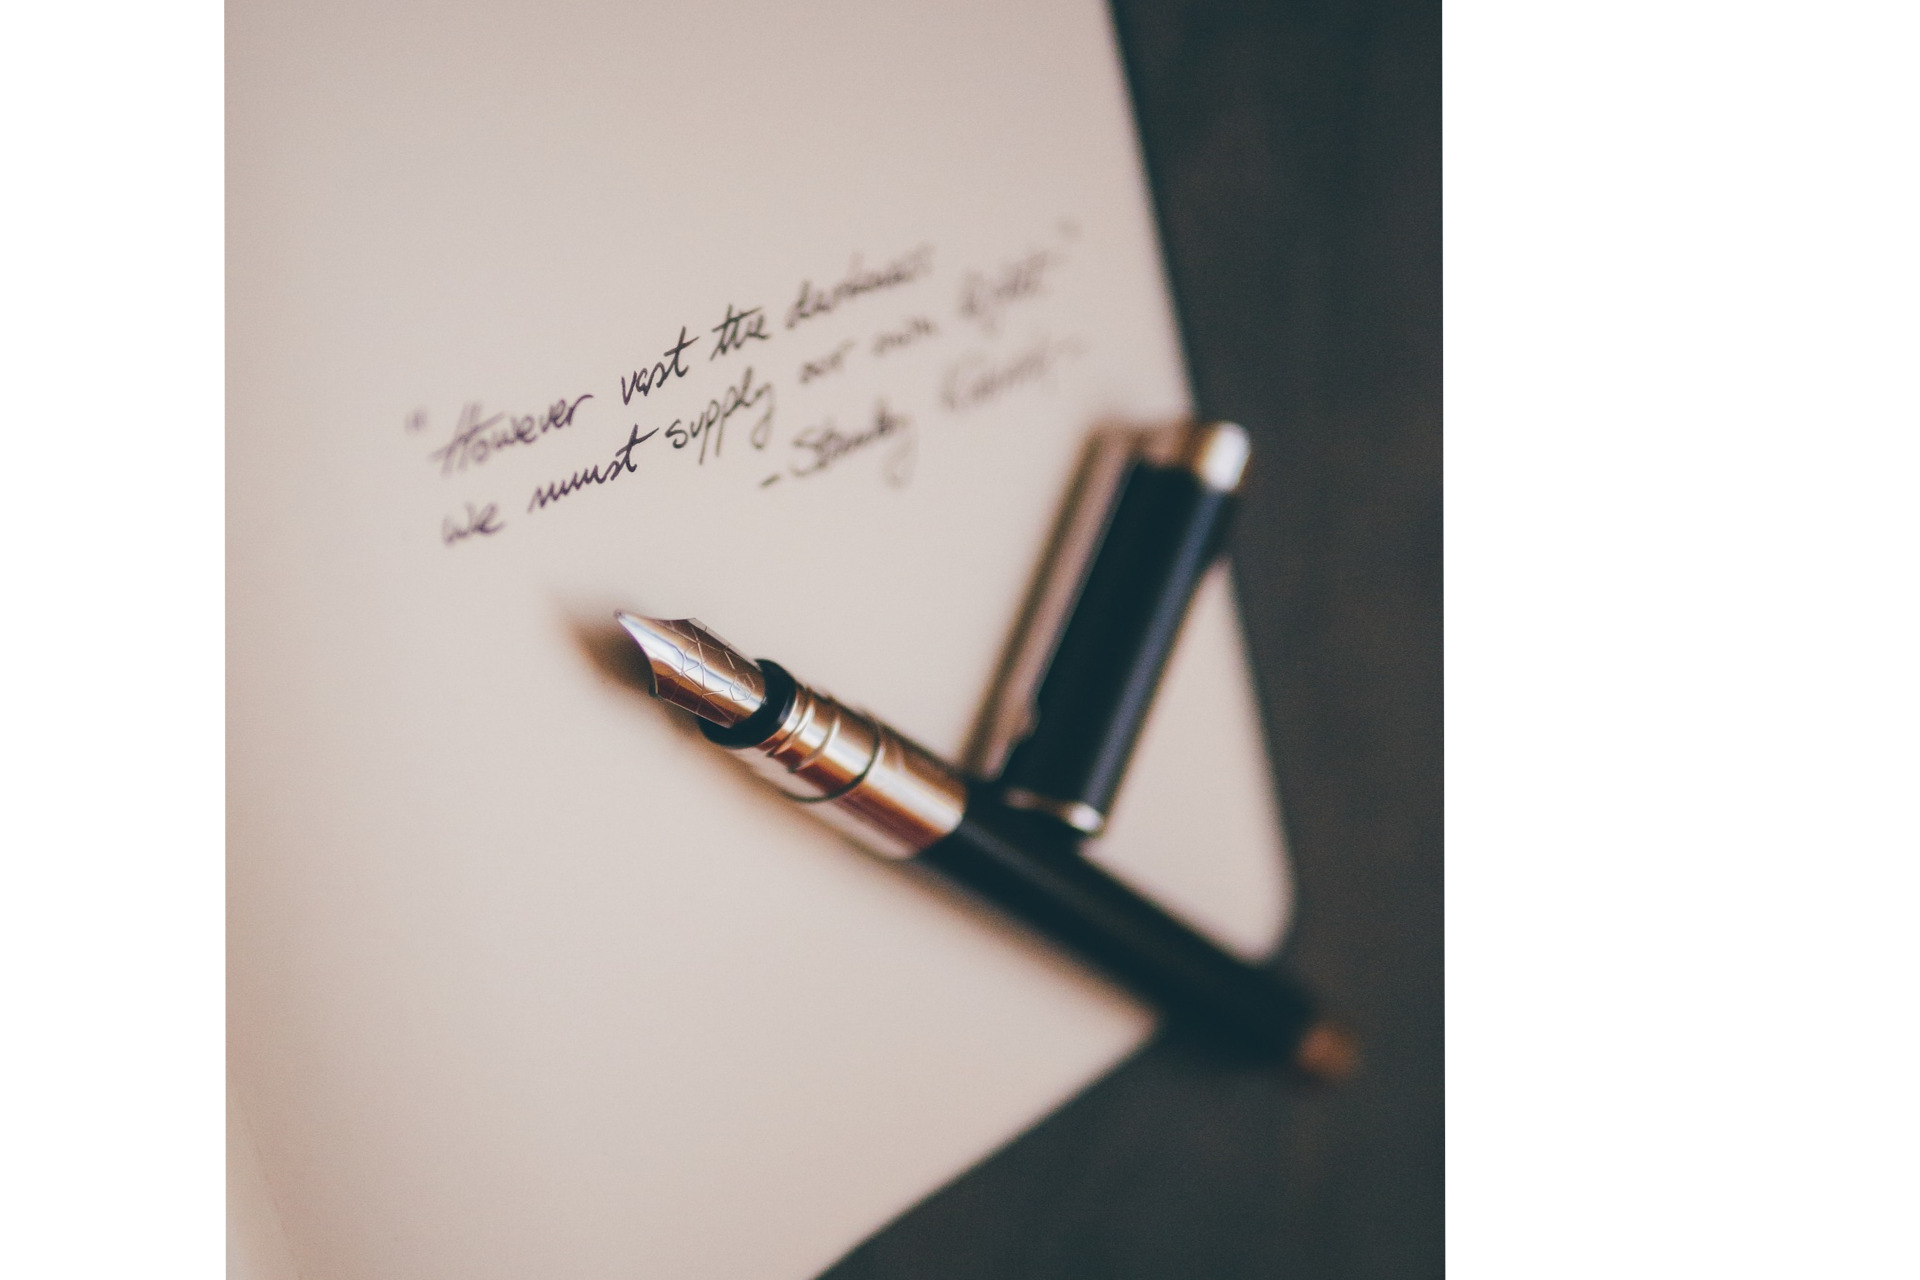 "However vast the darkness
we must supply our own light."
- Stanley Kubrick -